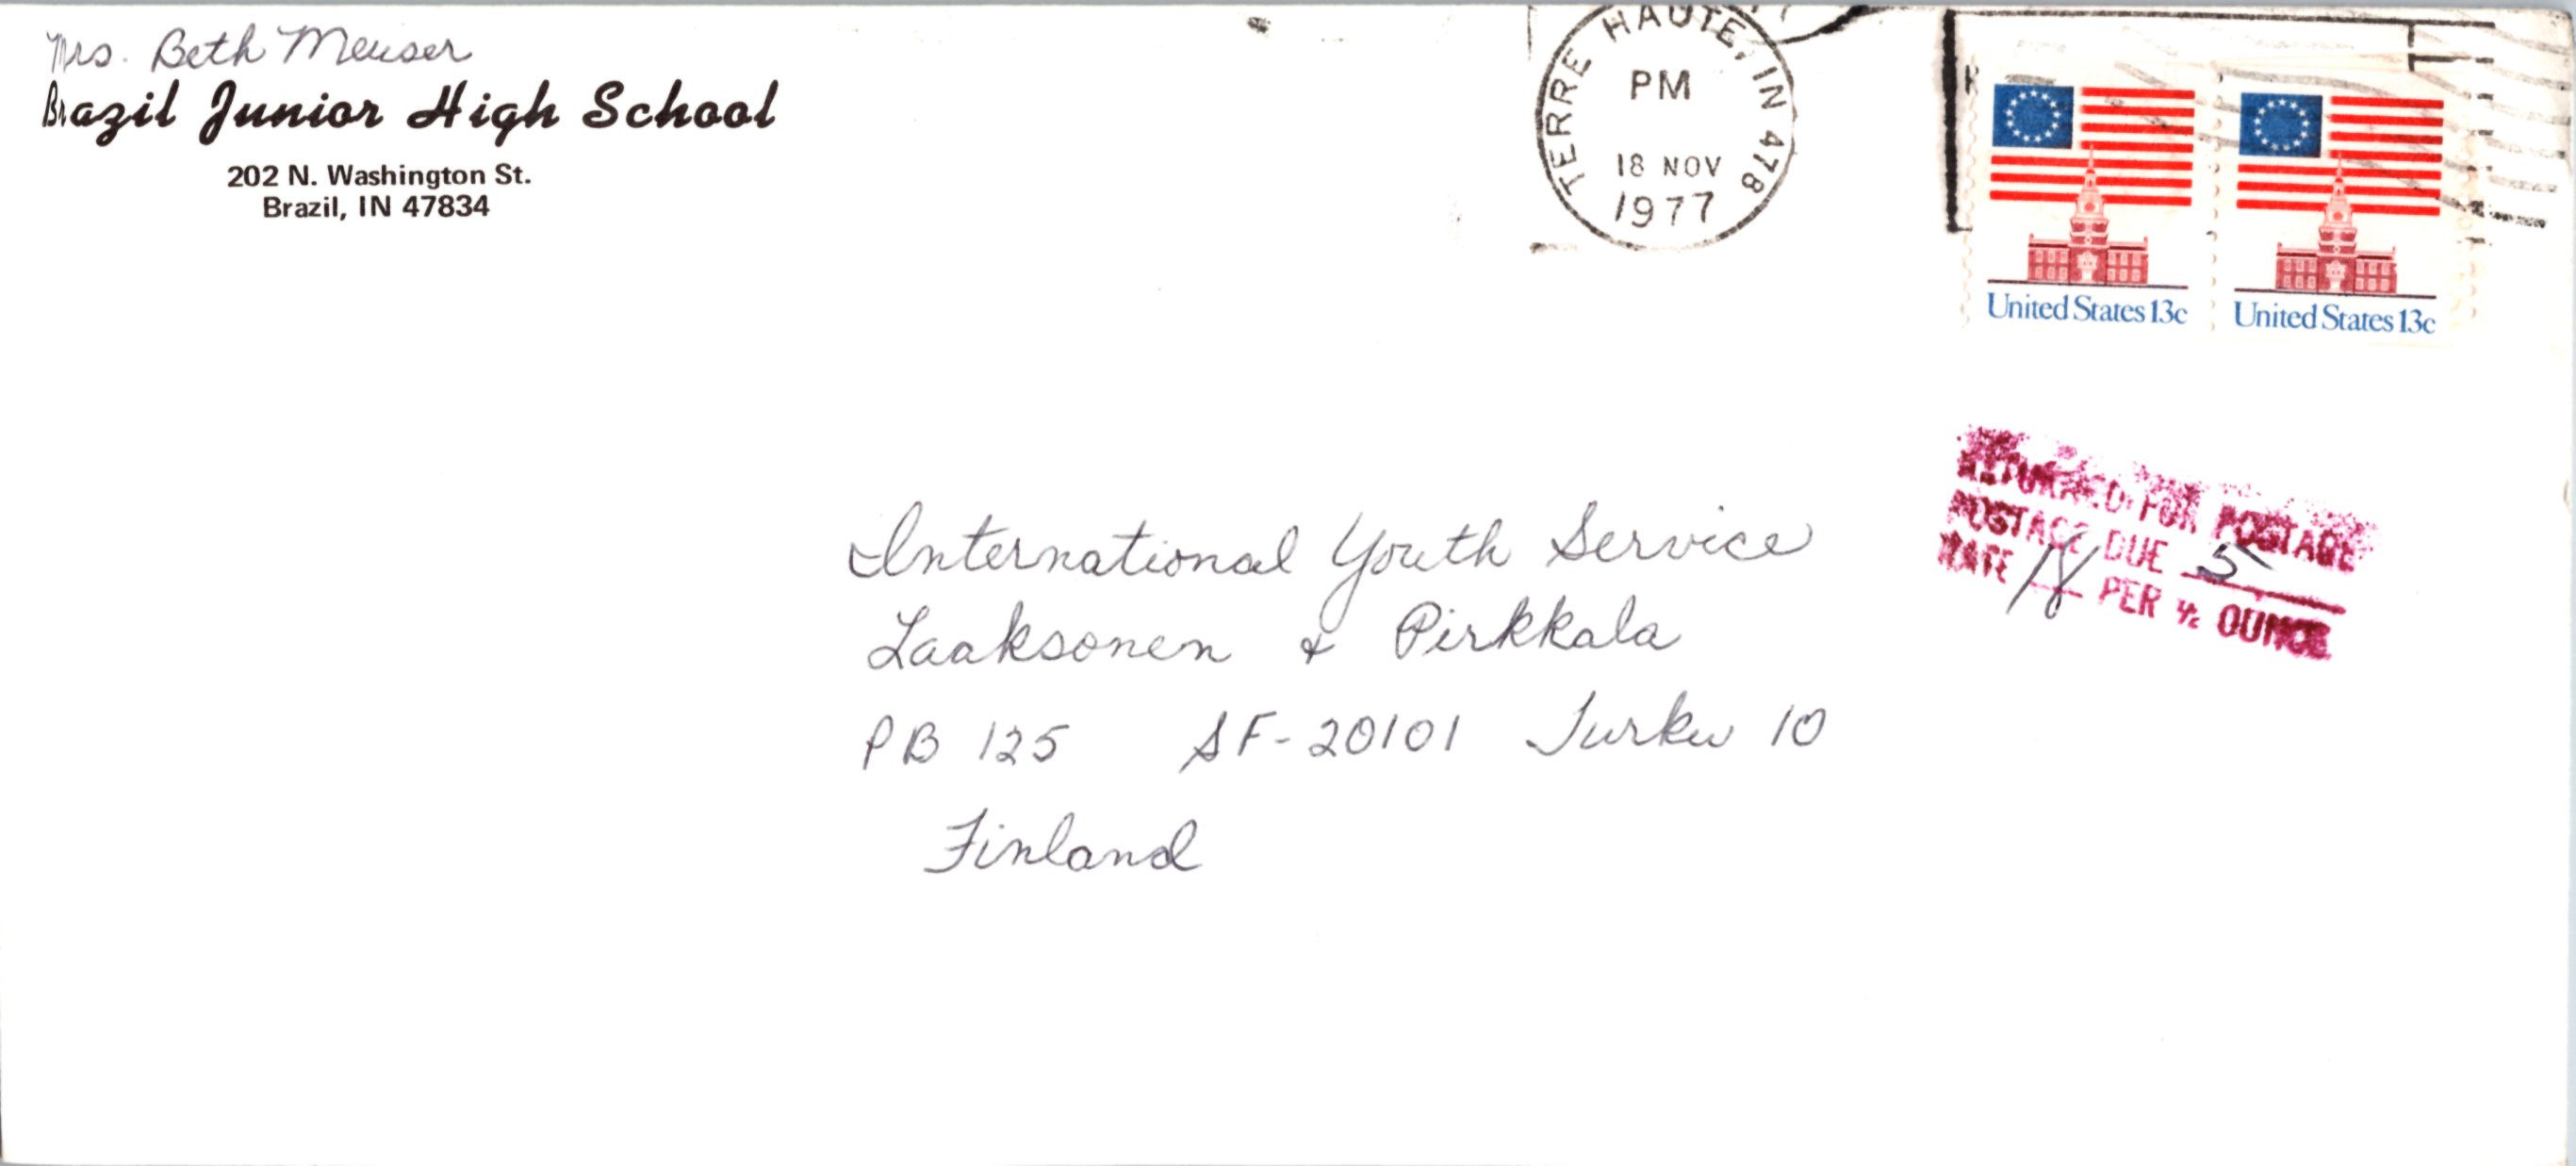 Mrs. Beth Meuser
Brazil Junior High School
202 N. Washington St.
Brazil, IN 47834
TERRE HAUTE, IN 478
PM
18 NOV
1977
United States 13c
United States 13c
RETURNED FOR POSTAGE
POSTAGE DUE 5
RATE 18 PER ½ OUNCE
International Youth Service
Laaksonen & Pirkkala
PB 125 SF-20101 Turku 10
Finland